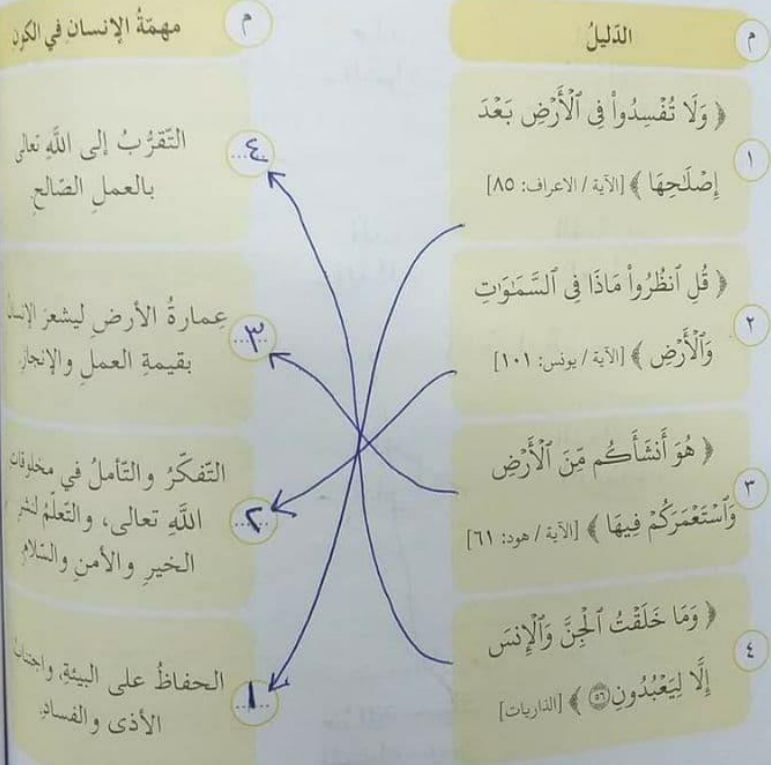 م
الدّليلُ
١
﴿ وَلَا تُفْسِدُوا۟ فِى ٱلْأَرْضِ بَعْدَ
إِصْلَـٰحِهَا ﴾ [الآية / الاعراف: ٨٥]
٢
﴿ قُلِ ٱنظُرُوا۟ مَاذَا فِى ٱلسَّمَـٰوَٰتِ
وَٱلْأَرْضِ ﴾ [الآية / يونس: ١٠١]
٣
﴿ هُوَ أَنشَأَكُم مِّنَ ٱلْأَرْضِ
وَٱسْتَعْمَرَكُمْ فِيهَا ﴾ [الآية / هود: ٦١]
٤
﴿ وَمَا خَلَقْتُ ٱلْجِنَّ وَٱلْإِنسَ
إِلَّا لِيَعْبُدُونِ ٥٦ ﴾ [الذاريات]
م
مهمّةُ الإنسانِ في الكون
٤
التّقرُّبُ إلى اللَّهِ تعالى
بالعملِ الصّالحِ
٣
عِمارةُ الأرضِ ليشعرَ الإنسانُ
بقيمةِ العملِ والإنجازِ
٢
التّفكّرُ والتّأملُ في مخلوقات
اللَّهِ تعالى، والتّعلّمُ لنشرِ
الخيرِ والأمنِ والسّلامِ
١
الحفاظُ على البيئةِ، واجتنابُ
الأذى والفسادِ